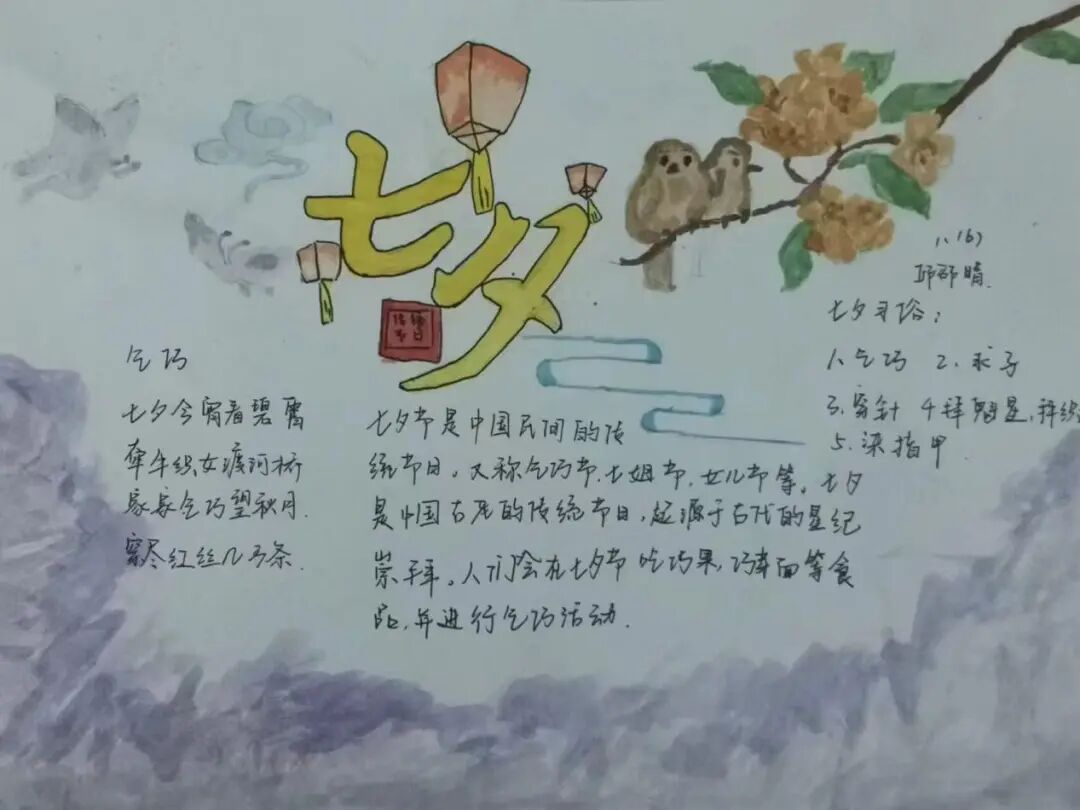 七夕
传统
节日
乞巧
七夕今宵看碧霄
牵牛织女渡河桥
家家乞巧望秋月
穿尽红丝几万条.
七夕节是中国民间的传
统节日。又称乞巧节.七姐节.女儿节等。七夕
是中国古老的传统节日,起源于古代的星纪
崇拜。人们会在七夕节吃巧果,巧芽面等食
品,并进行乞巧活动.
邱邵晴.
七夕习俗:
1.乞巧 2.求子
3.穿针 4.拜魁星,拜织
5.染指甲